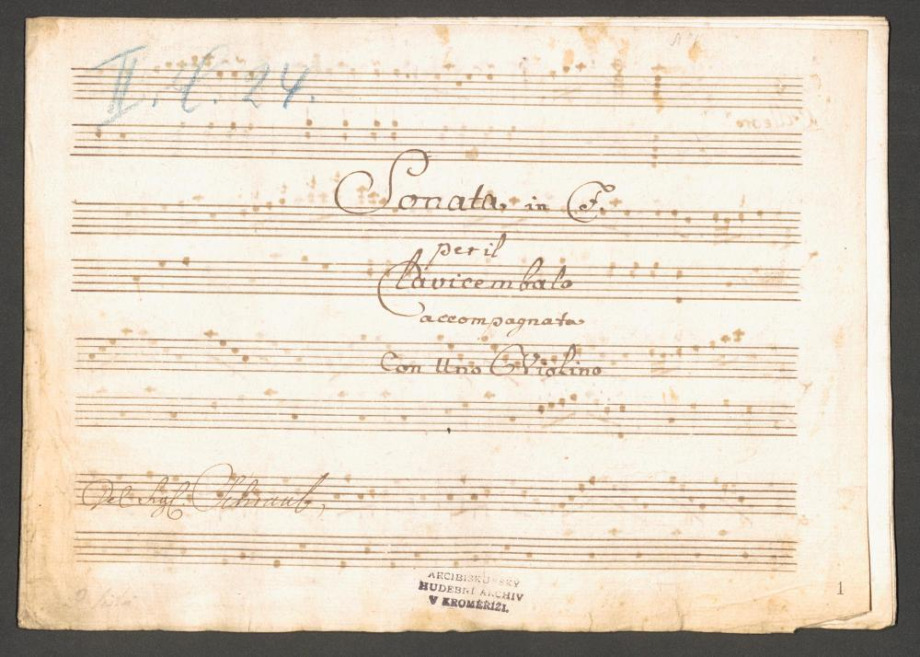 II. C. 24.
Sonata in F.
per il
Clavicembalo
accompagnata
Con Uno Violino
Del Sigl:
ARCIBISKUPSKÝ
HUDEBNÍ ARCHIV
V KROMĚŘÍŽI.
1